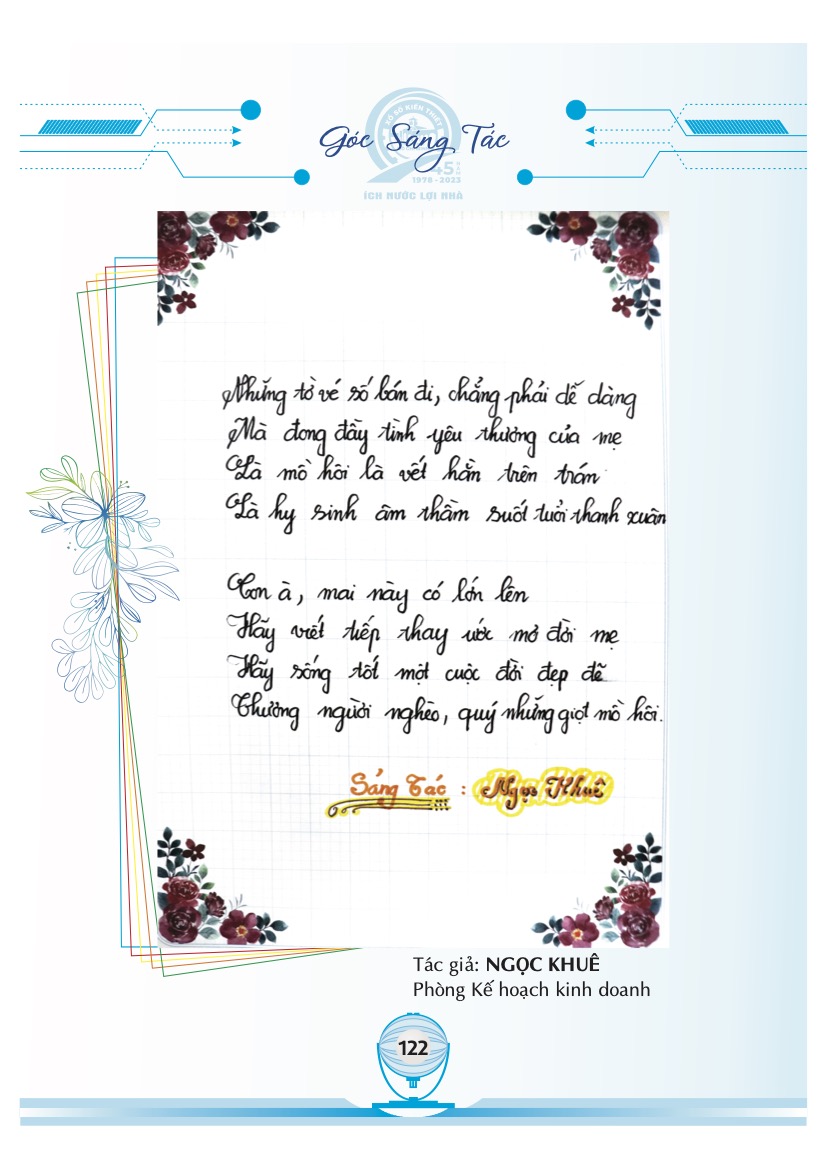 Góc Sáng Tác
XỔ SỐ KIẾN THIẾT
45 NĂM
1978 - 2023
ÍCH NƯỚC LỢI NHÀ
Những tờ vé số bán đi, chẳng phải dễ dàng
Mà đong đầy tình yêu thương của mẹ
Là mồ hôi là vết hằn trên trán
Là hy sinh âm thầm suốt tuổi thanh xuân
Con à, mai này có lớn lên
Hãy viết tiếp thay ước mơ đời mẹ
Hãy sống tốt một cuộc đời đẹp đẽ
Thương người nghèo, quý những giọt mồ hôi.
Sáng Tác : Ngọc Khuê
Tác giả: NGỌC KHUÊ
Phòng Kế hoạch kinh doanh
122